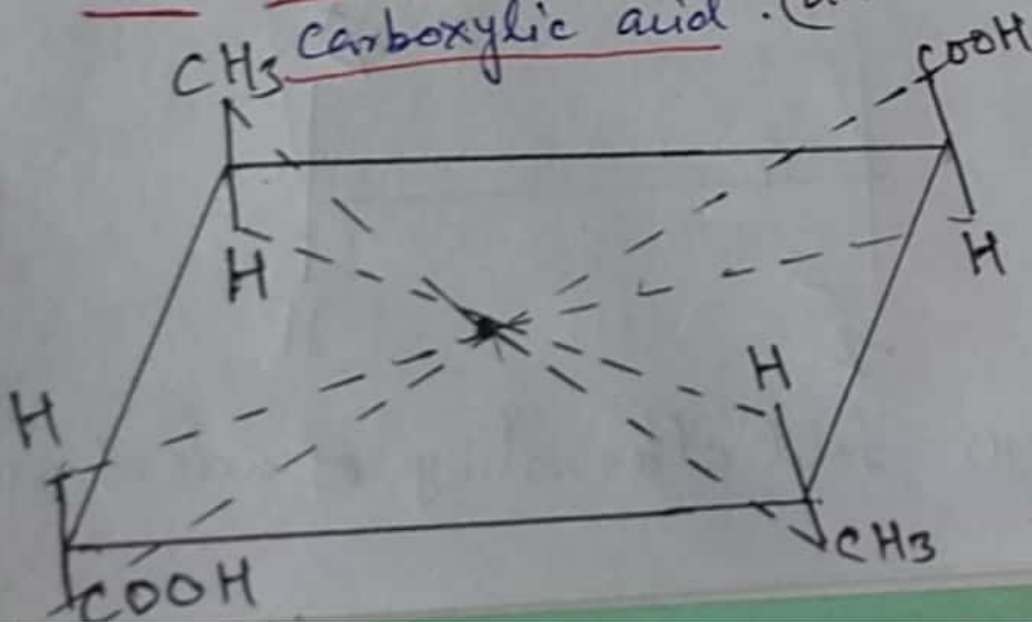 Carboxylic acid. (
CH3
COOH
H
H
H
H
COOH
CH3